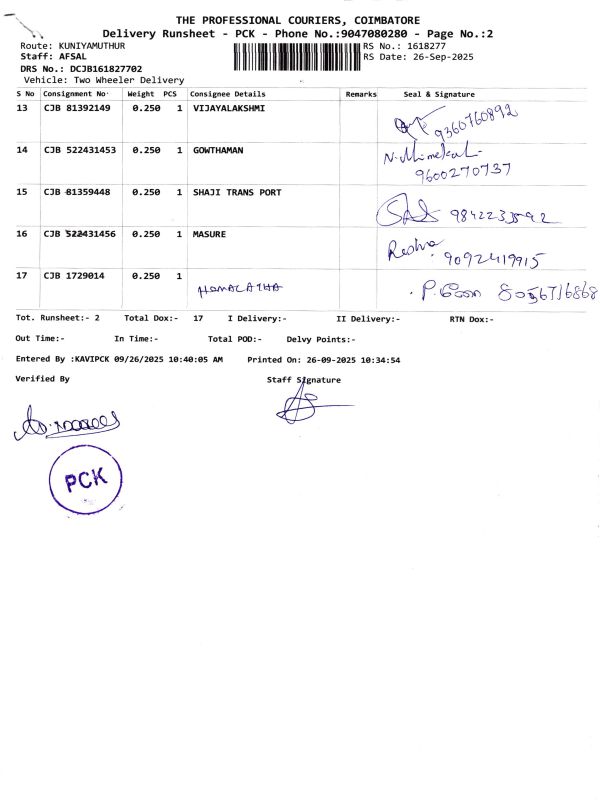 THE PROFESSIONAL COURIERS, COIMBATORE
Delivery Runsheet - PCK - Phone No.:9047080280 - Page No.:2
Route: KUNIYAMUTHUR RS No.: 1618277
Staff: AFSAL RS Date: 26-Sep-2025
DRS No.: DCJB161827702
Vehicle: Two Wheeler Delivery
S No Consignment No Weight PCS Consignee Details Remarks Seal & Signature
13 CJB 81392149 0.250 1 VIJAYALAKSHMI
9360760892
14 CJB 522431453 0.250 1 GOWTHAMAN
9600270737
15 CJB 81359448 0.250 1 SHAJI TRANS PORT
16 CJB 522431456 0.250 1 MASURE
9092419915
17 CJB 1729014 0.250 1
HEMALATHA 8056716868
Tot. Runsheet:- 2 Total Dox:- 17 I Delivery:- II Delivery:- RTN Dox:-
Out Time:- In Time:- Total POD:- Delvy Points:-
Entered By :KAVIPCK 09/26/2025 10:40:05 AM Printed On: 26-09-2025 10:34:54
Verified By Staff Signature
PCK